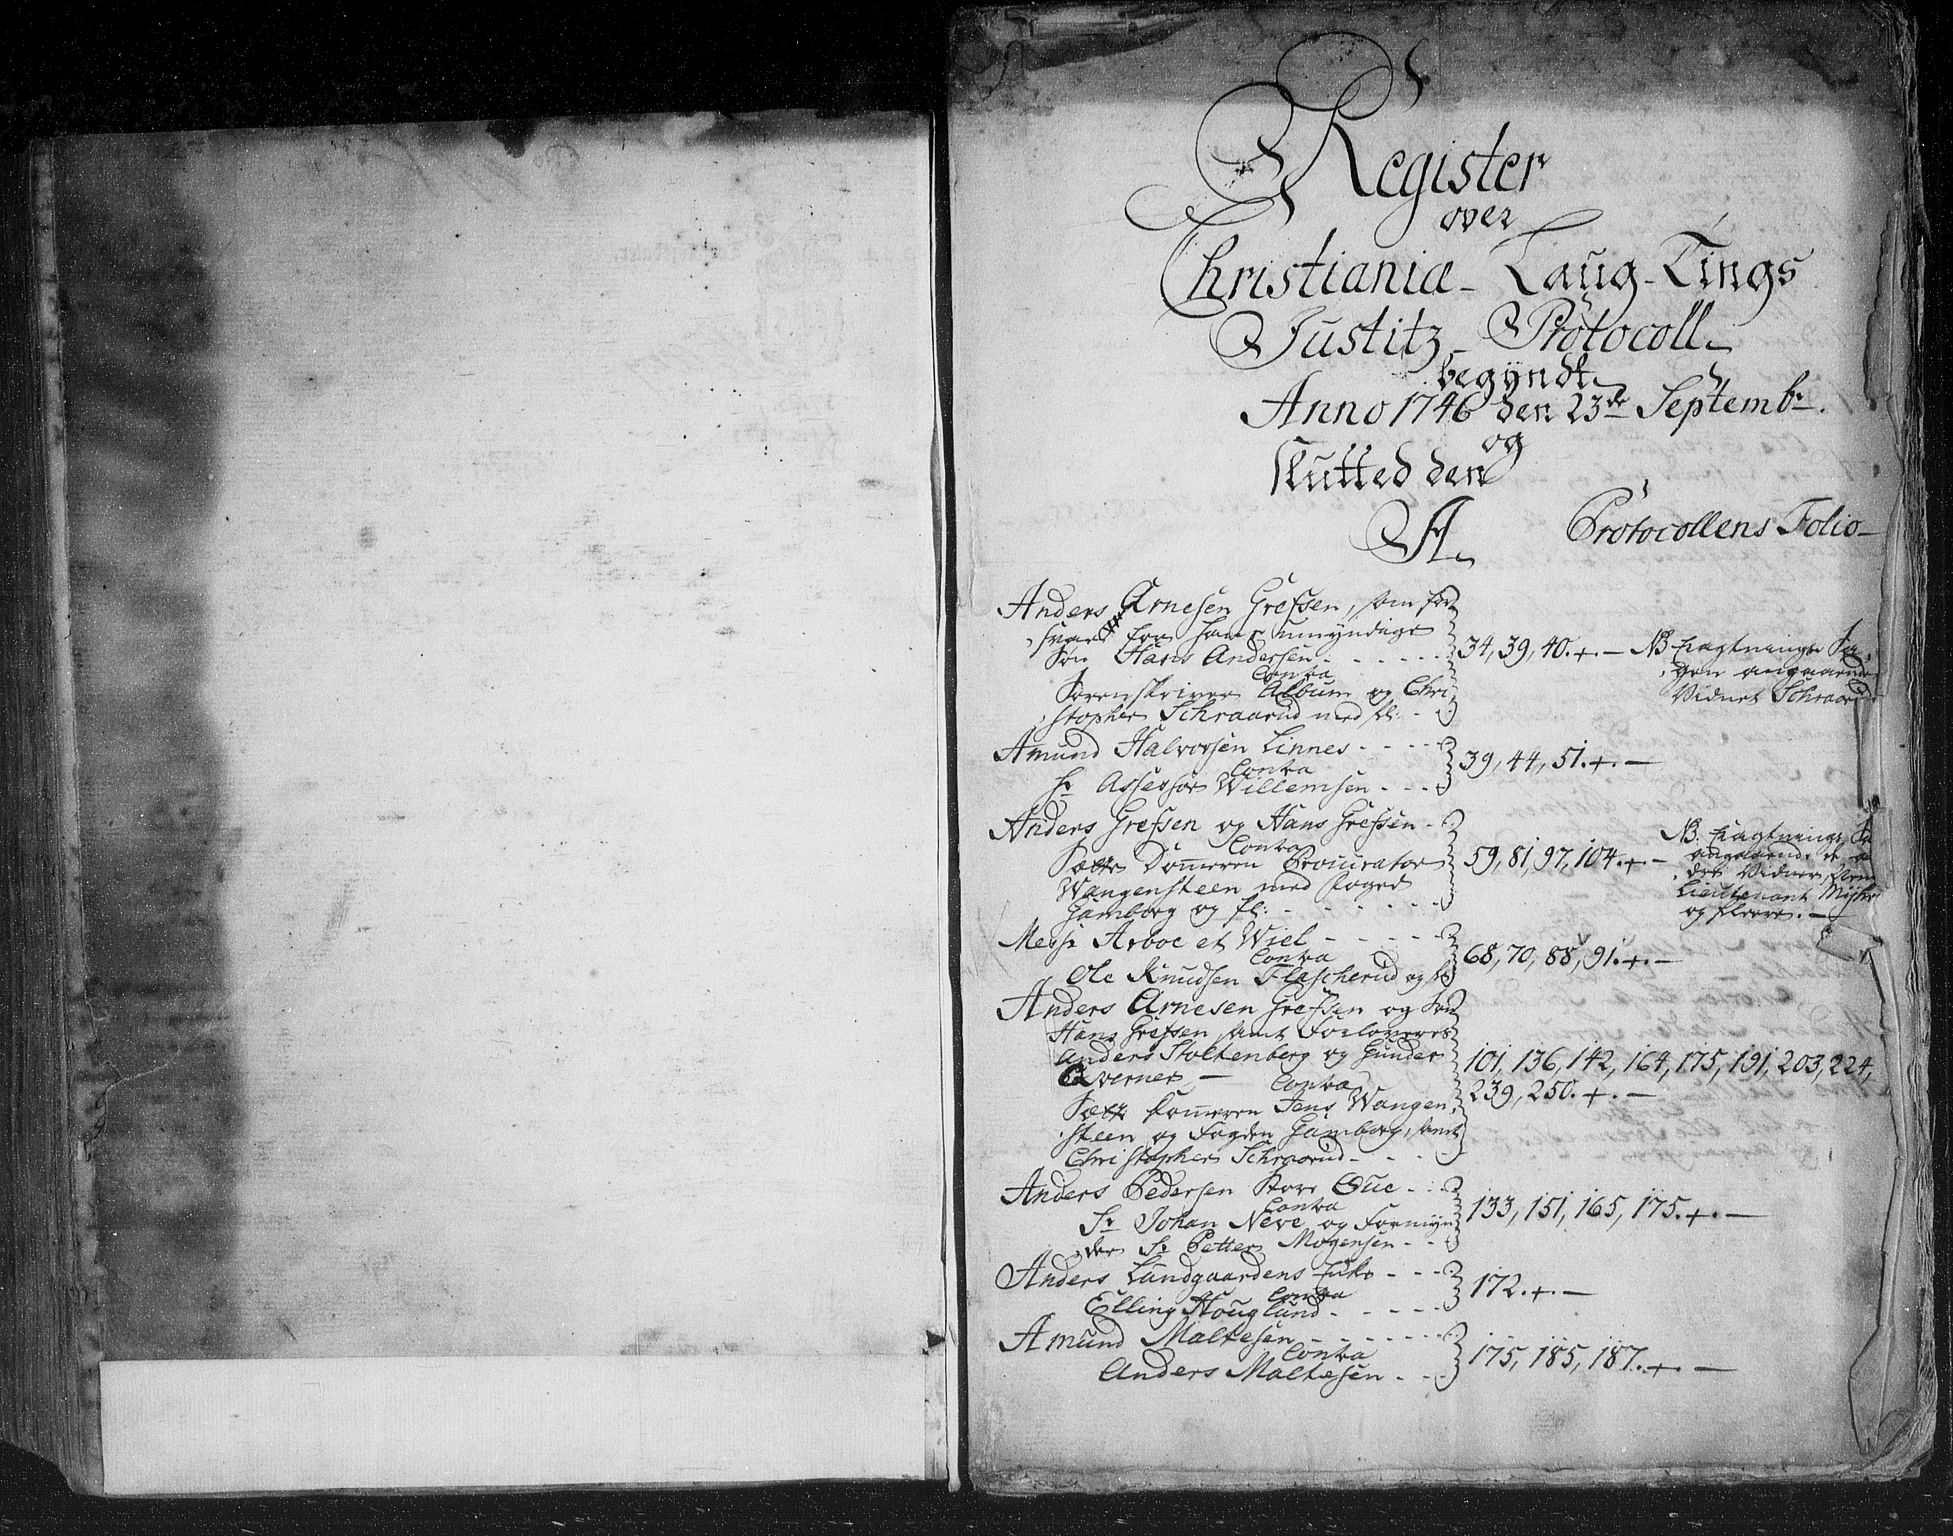 Register
over
Christiania Laug-Tings
Justitz-Protocoll
begyndt
Anno 1746 den 23de Septembr.
og
slutted den
A. Protocollens Folio
Anders Arnesen Grefsen, som for
svar for hans umyndige
Søn Hans Andersen
Contra
Sorenskriver Album og Chri
stopher Schraarud med fl:
34, 39, 40. +. —
NB Fragtnings Sa
gen angaaende
Vidnet Schraarud
Amund Halvorsen Linnes
Contra
Hr Assessor Willemsen
39, 44, 51. +. —
Anders Grefsen og Hans Grefsen
Contra
Sætte Dommeren Procurator
Wangensteen med Foged
Gamborg og fl:
59, 81, 97, 104. +. —
NB. Fragtnings Sa
angaaende
det Vidner, som
Lieutenant
og fleere. —
Messrs Arboe et Wiel
Contra
Ole Knudsen Flascherud og fl
68, 70, 88, 91. +. —
Anders Arnesen Grefsen og Søn
Hans Grefsen, samt Forloverne
Anders Stoltenberg og Gunder
Qverner, — Contra
Sætte Dommeren Jens Wangen
steen og Fogden Gamborg, samt
Christopher Schraarud
101, 136, 142, 164, 175, 191, 203, 224,
239, 250. +. —
Anders Pedersen Store Oue
Contra
Sr Johan Neve og Formyn
der Sr Petter Mogensen
133, 151, 165, 175. +. —
Anders Lundgaardens Enke
Contra
Elling Houglund
172. +. —
Amund Maltesen
Contra
Anders Maltesen
175, 185, 187. +. —